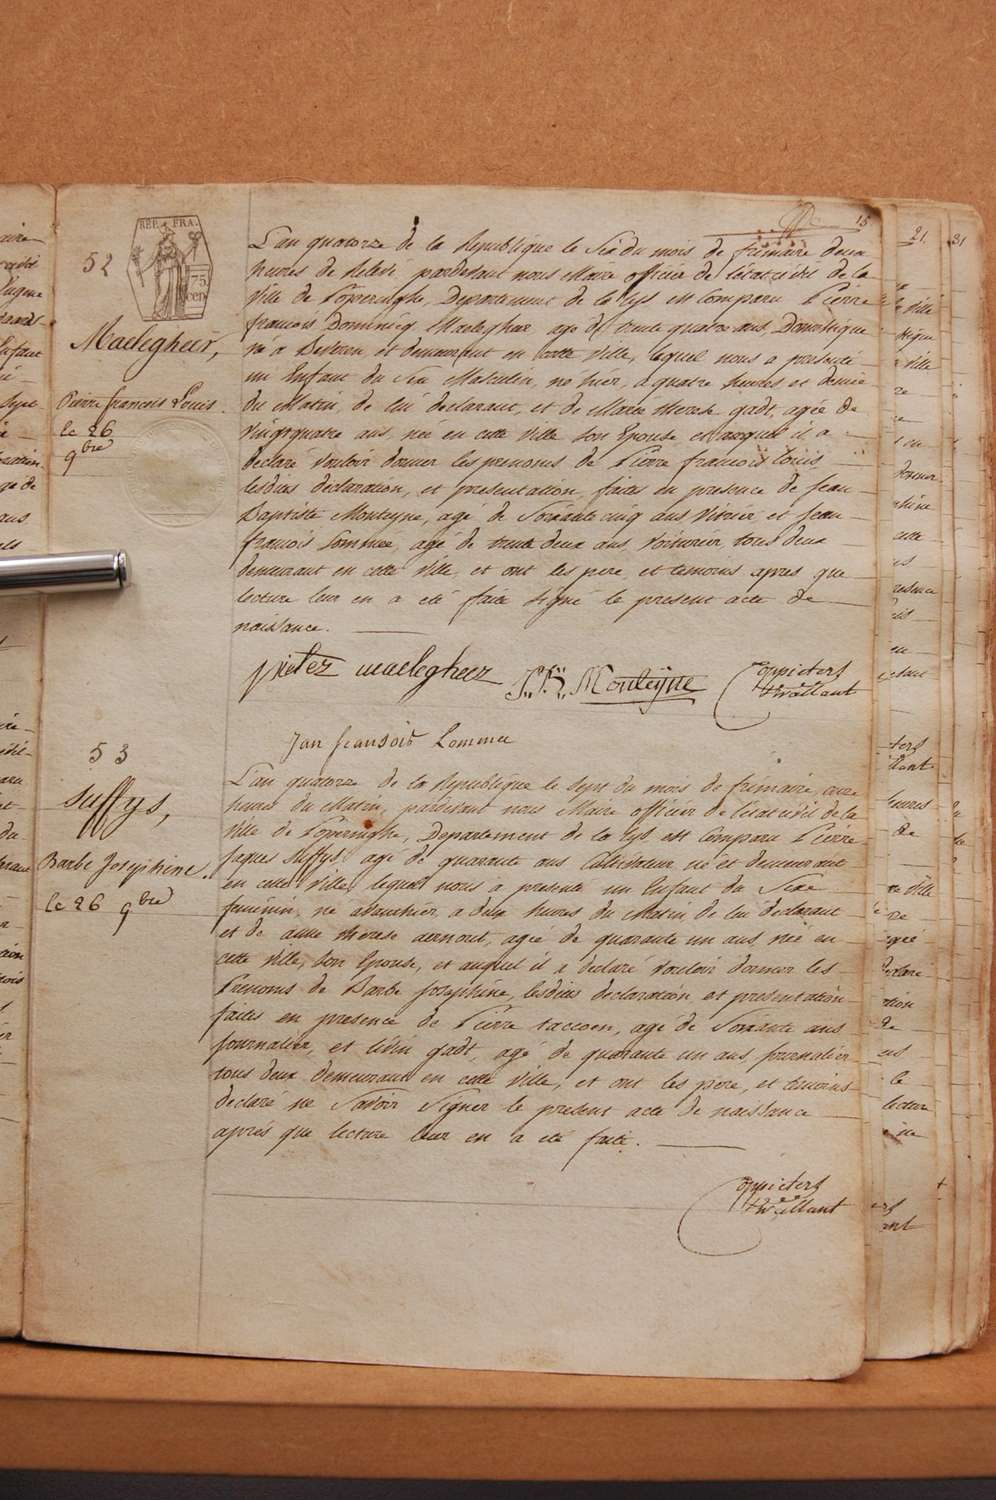 15
21
31
REP. FRA.
75 cen
52
Maelegheer,
Pierre francois Louis.
le 26
9bre
L'an quatorze de la Republique le Six du mois de frimaire deux
heures de Relevé pardevant nous Maire officier de l'etat civil de la
Ville de Poperinghe, Departement de la Lys est Comparu Pierre
francois Dominiq Maelegheer agé de trente quatre ans, Domestique
né a et demeurant en cette Ville, lequel nous a presenté
un Enfant du Sexe Masculin, né hier, a quatre heures et demie
du Matin, de lui declarant, et de Marie therese gadt, agée de
Vingtquatre ans, née en cette Ville son Epouse et auquel il a
declaré vouloir donner les prenoms de Pierre francois Louis,
lesdites declaration, et presentation, faites en presence de Jean
Baptiste Monteyne, agé de Soixante cinq ans Vitrier et Jean
francois Lommee, agé de trente deux ans, Voiturier, tous deux
demeurant en cette Ville, et ont les pere, et temoins apres que
lecture leur en a eté faite signé le present acte de
naissance.
pieter maelegheer J. B. Monteyne
Coppieters
Jan fransois Lommee
53
Suffys,
Barbe Josephine.
le 26 9bre
L'an quatorze de la Republique le Sept du mois de frimaire, onze
heures du Matin, pardevant nous Maire officier de l'etat civil de la
Ville de Poperinghe, Departement de la Lys est Comparu Pierre
Jaques Suffys agé de quarante ans Cabareteur né et demeurant
en cette Ville lequel nous a presenté un Enfant du Sexe
feminin, né avanthier, a deux heures du Matin de lui declarant
et de anne therese aernout, agée de quarante un ans, née en
cette Ville, son Epouse, et auquel il a declaré vouloir donner les
Prenoms de Barbe Josephine, lesdites declaration, et presentation
faites en presence de Pierre taccoen, agé de Soixante ans
Journalier, et Livin gadt, agé de quarante un ans, journalier
tous deux demeurant en cette Ville, et ont les pere, et temoins
declaré ne Savoir Signer le present acte de naissance
après que lecture leur en a eté faite.
Coppieters